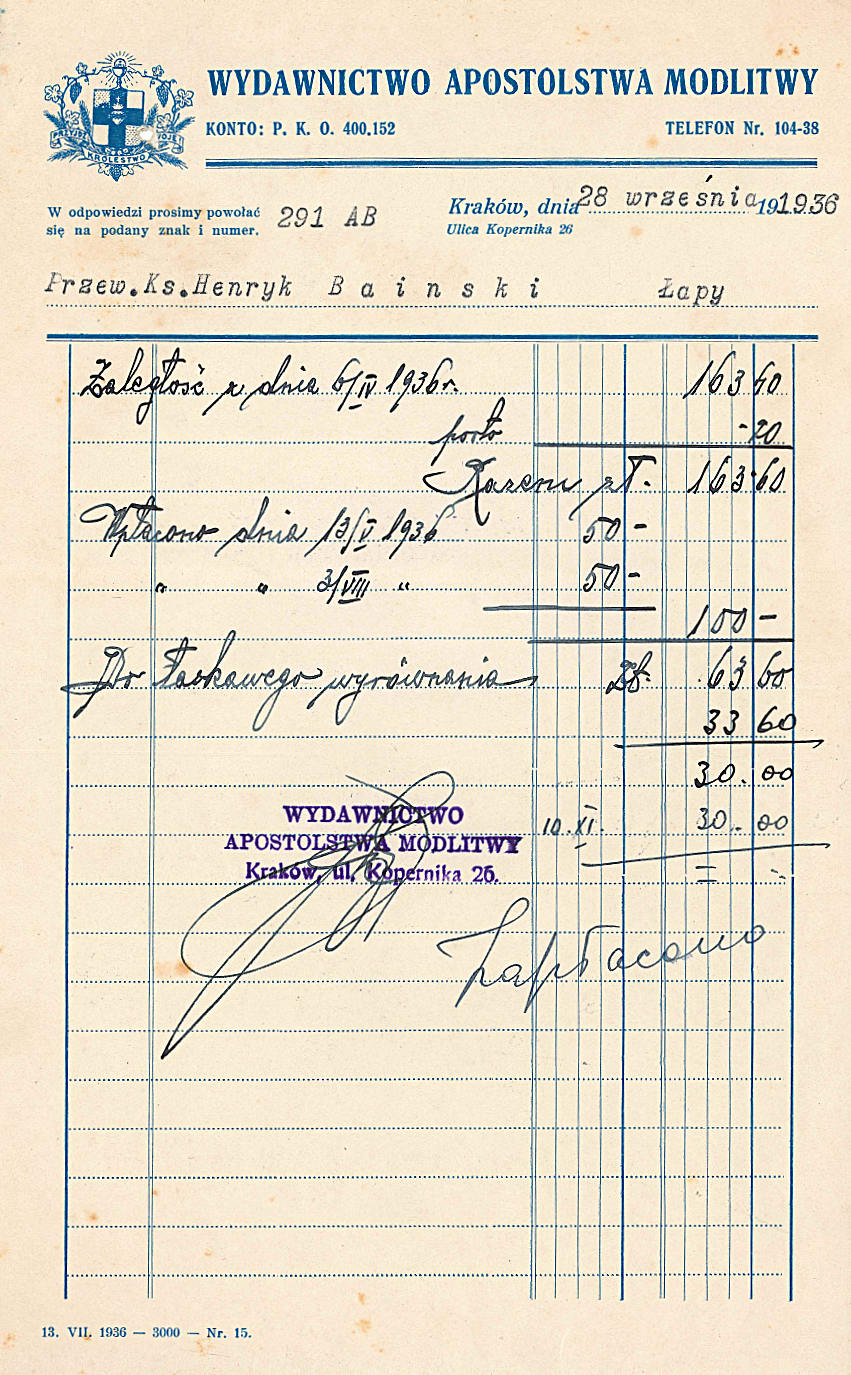 WYDAWNICTWO APOSTOLSTWA MODLITWY
PRZYJDŹ KRÓLESTWO TWOJE
KONTO: P. K. O. 400.152 TELEFON Nr. 104-38
W odpowiedzi prosimy powołać
się na podany znak i numer. 291 AB
Kraków, dnia 28 września 191936
Ulica Kopernika 26
Przew.Ks.Henryk Bainski Łapy
Zaległość z dnia 6/IV 1936 r. 163 40
porto -20
Razem zł. 163·60
Wpłacono dnia 13/V 1936 50 -
" " 3/VIII " 50 -
100 -
Do łaskawego wyrównania Zł. 63 60
33 60
30. 00
10. XI. 30. 00
WYDAWNICTWO
APOSTOLSTWA MODLITWY
Kraków, ul. Kopernika 26.
Zapłacono
13. VII. 1936 — 3000 — Nr. 15.